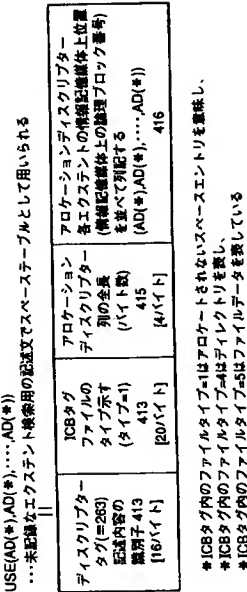 USE(AD(*),AD(*),・・・・,AD(*))
・・・未記録なエクステント検索用の記述文でスペーステーブルとして用いられる
ディスクリプター
タグ(=263)
記述内容の
識別子413
[16バイト]
ICBタグ
ファイルの
タイプ示す
(タイプ=1)
413
[20バイト]
アロケーション
ディスクリプター
列の全長
(バイト数)
415
[4バイト]
アロケーションディスクリプター
各エクステントの情報記憶媒体上位置
(情報記憶媒体上の論理ブロック番号)
を並べて列記する
(AD(*),AD(*),・・・・,AD(*))
416
*ICBタグ内のファイルタイプ=1はアロケートされないスペースエントリを意味し、
*ICBタグ内のファイルタイプ=4はディレクトリを表し、
*ICBタグ内のファイルタイプ=5はファイルデータを表している